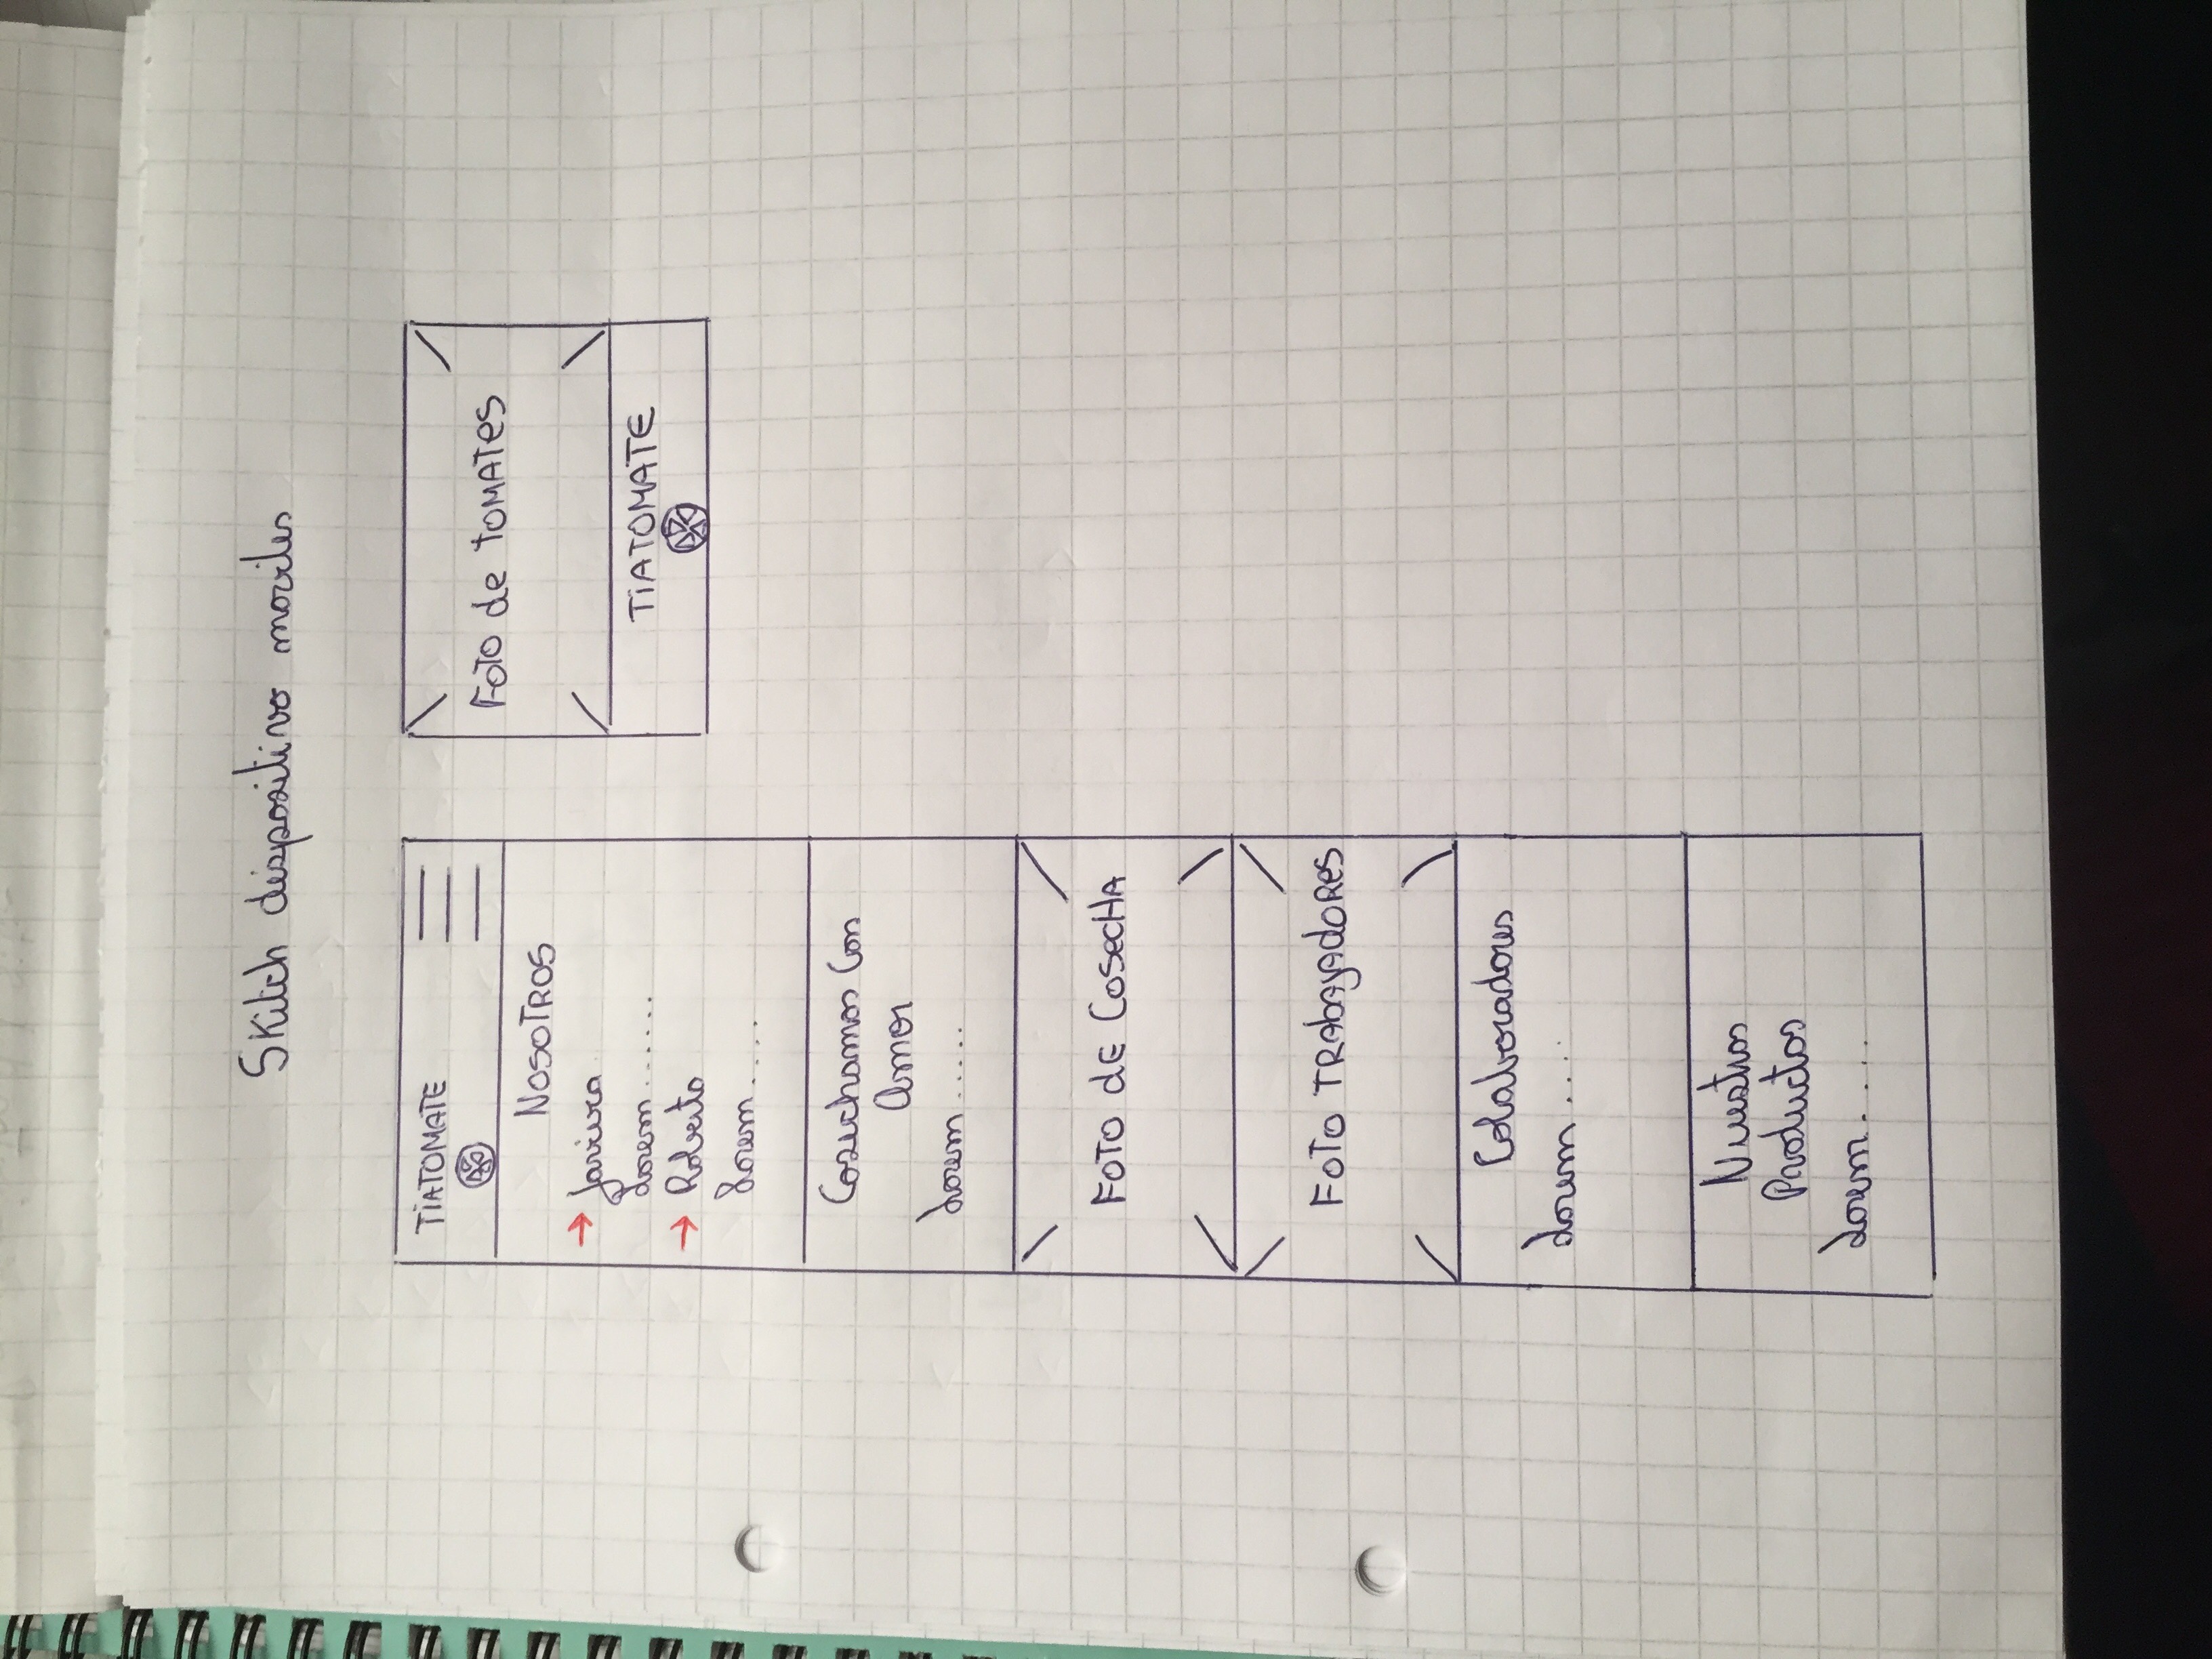 Skitch dispositivo moviles
TIATOMATE
NOSOTROS
→ Javiera
Lorem ......
→ Roberto
Lorem ....
Cosechamos Con
Amor
Lorem .....
FOTO dE COSECHA
FOTO TRAbajAdORes
Colaboradores
Lorem ....
Nuestros
Productos
Lorem ....
FOTO de TOMATES
TIATOMATE